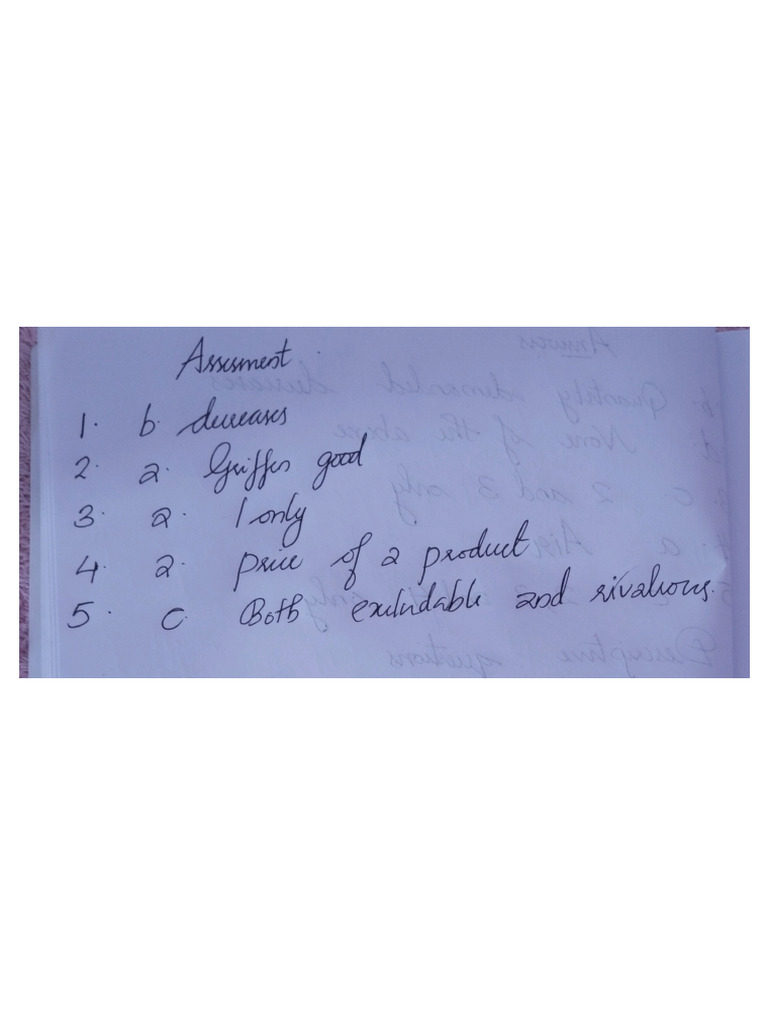 Assesment
1. b. decreases
2. a. Griffen good
3. a. 1 only
4. a. price of a product
5. c. Both exludable and rivalrous.